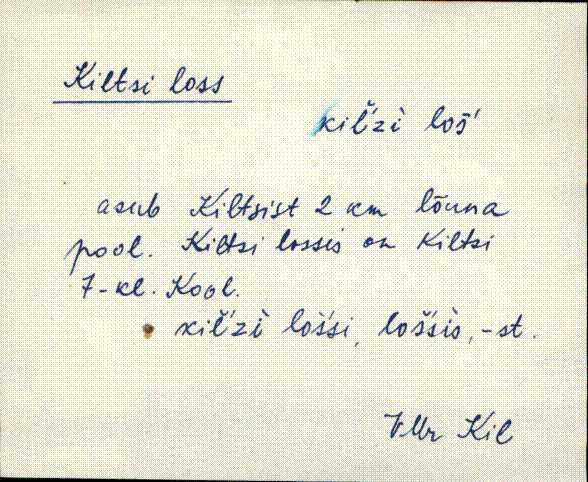 Kiltsi loss
kil̆'zì loš'
asub Kiltsist 2 km lõuna
pool. Kiltsi lossis on Kiltsi
7-kl. Kool.
kil̆'zì loš'si, loš'sìs, -st.
VMr Kil